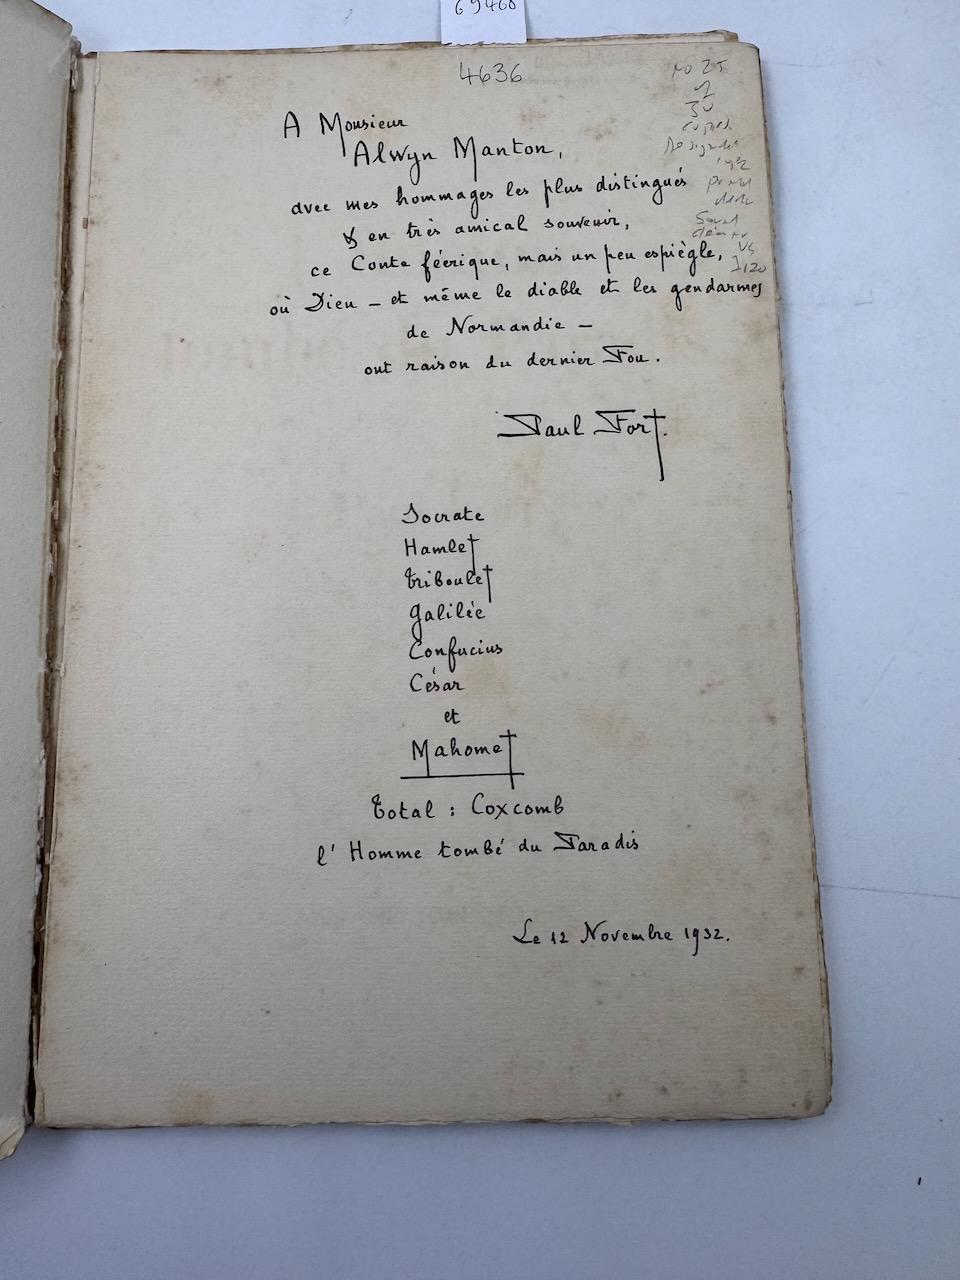 69460
4636
No 25
A Monsieur
Alwyn Manton,
avec mes hommages les plus distingués
& en très amical souvenir,
ce Conte féerique, mais un peu espiègle,
où Dieu — et même le diable et les gendarmes
de Normandie —
ont raison du dernier Fou.
Paul Fort.
Socrate
Hamlet
Triboulet
Galilée
Confucius
César
et
Mahomet
Total : Coxcomb
l'Homme tombé du Paradis
Le 12 Novembre 1932.